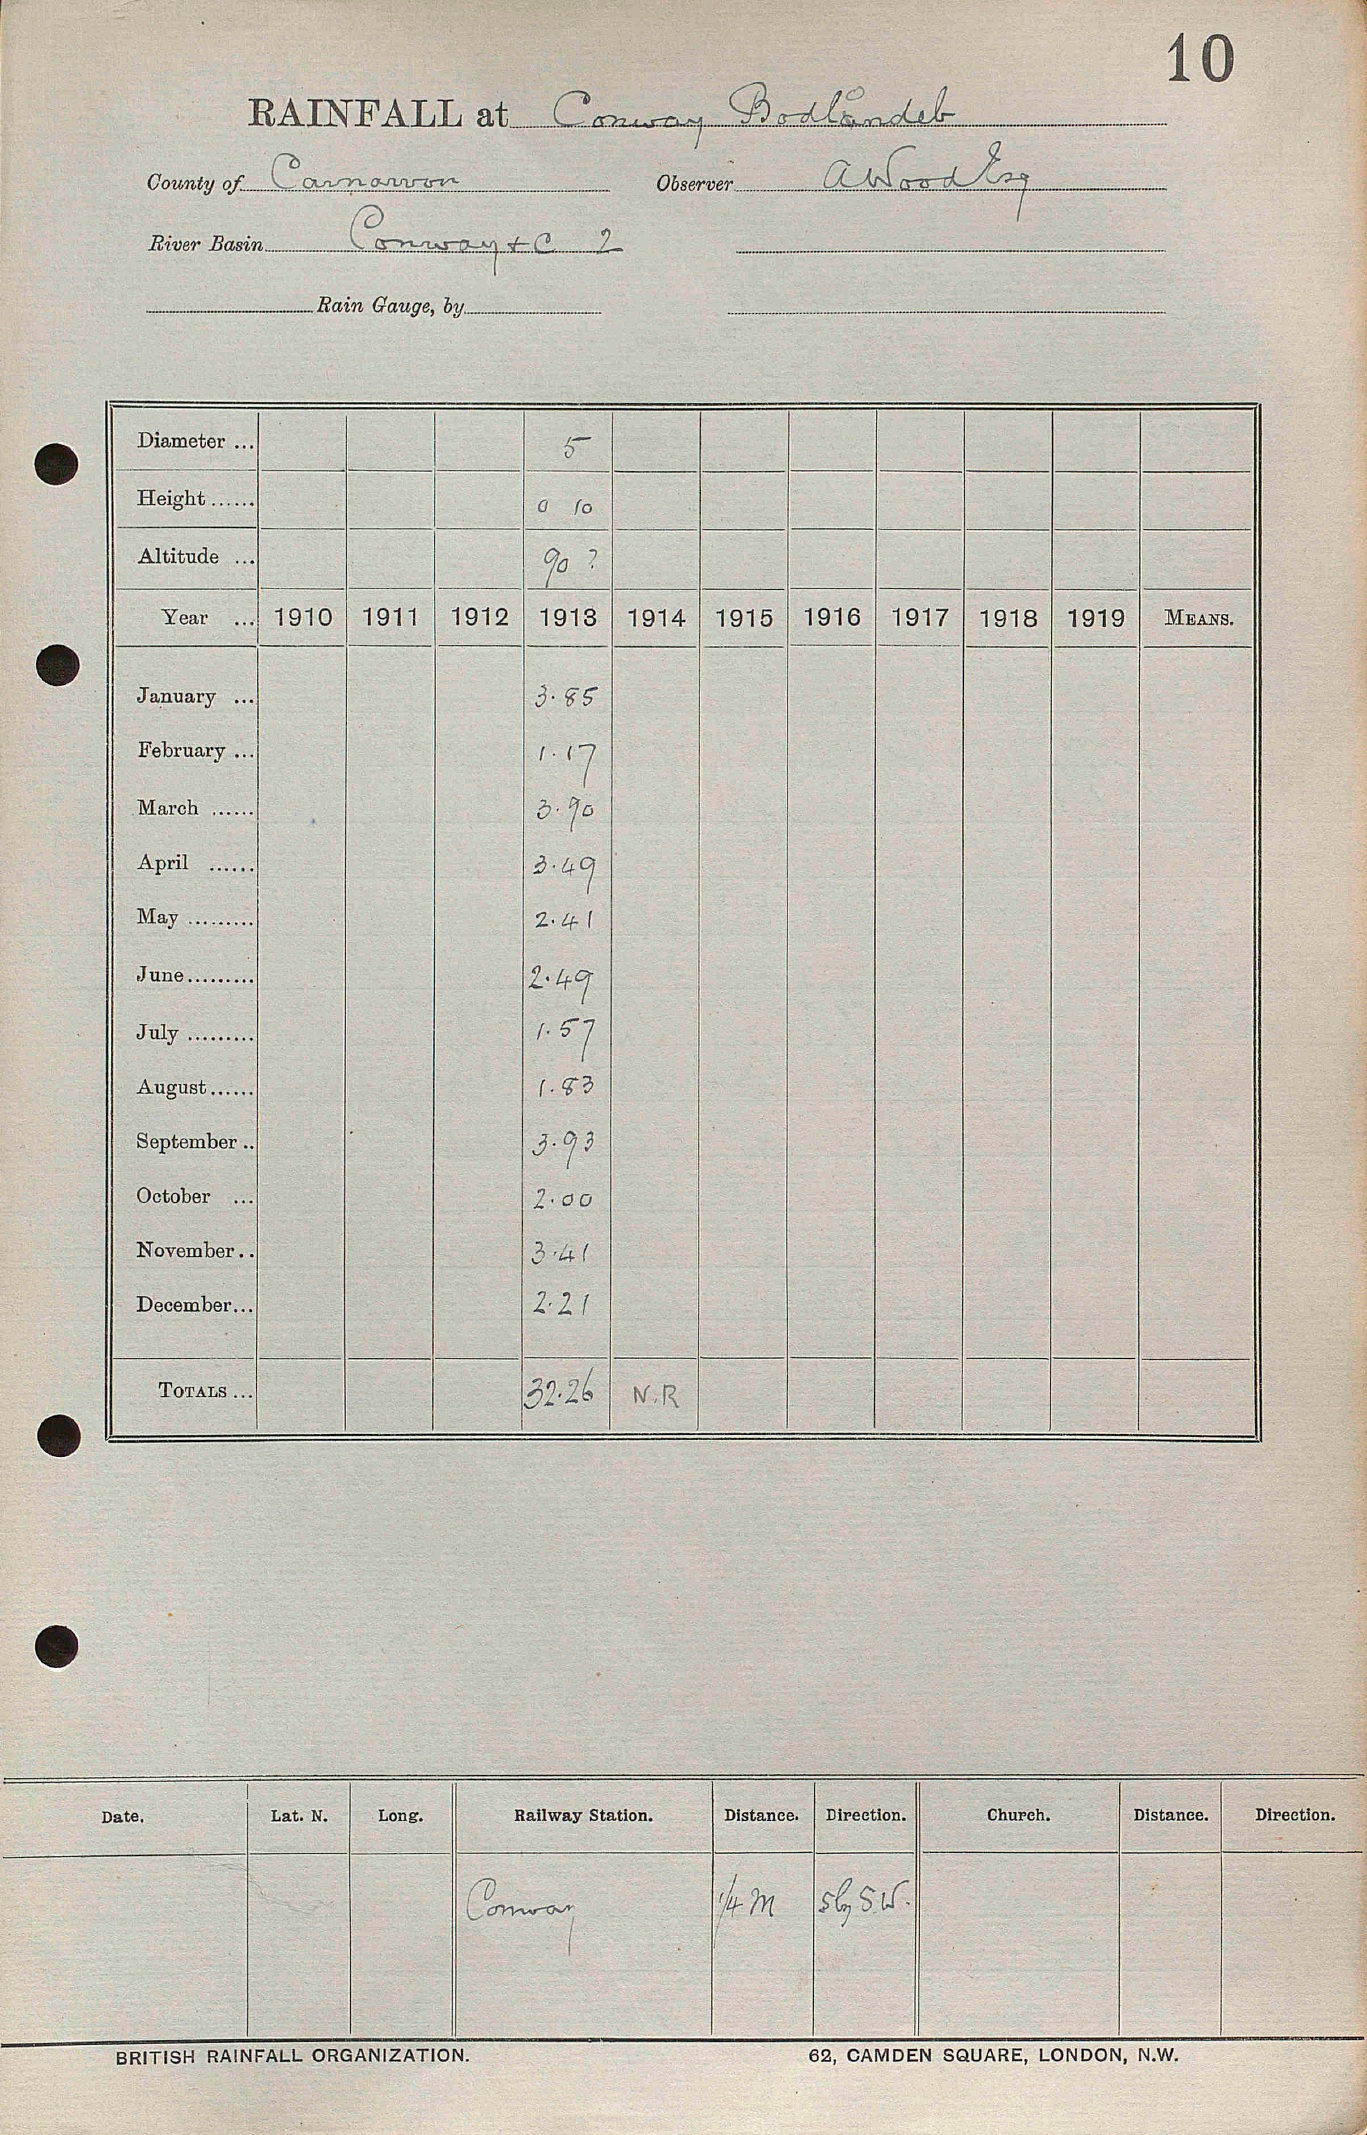 10
RAINFALL at Conway Bodlondeb
County of Carnarvon Observer A Wood Esq
River Basin Conway + C 2
Rain Gauge, by
Diameter ... 5
Height ...... 0 10
Altitude ... 90 ?
Year ... 1910 1911 1912 1913 1914 1915 1916 1917 1918 1919 MEANS.
January ... 3.85
February ... 1.17
March ...... 3.90
April ...... 3.49
May ......... 2.41
June ......... 2.49
July ......... 1.57
August ...... 1.83
September .. 3.93
October ... 2.00
November .. 3.41
December ... 2.21
TOTALS ... 32.26 N.R
Date. Lat. N. Long. Railway Station. Distance. Direction. Church. Distance. Direction.
Conway 1/4 M S by S.W.
BRITISH RAINFALL ORGANIZATION. 62, CAMDEN SQUARE, LONDON, N.W.